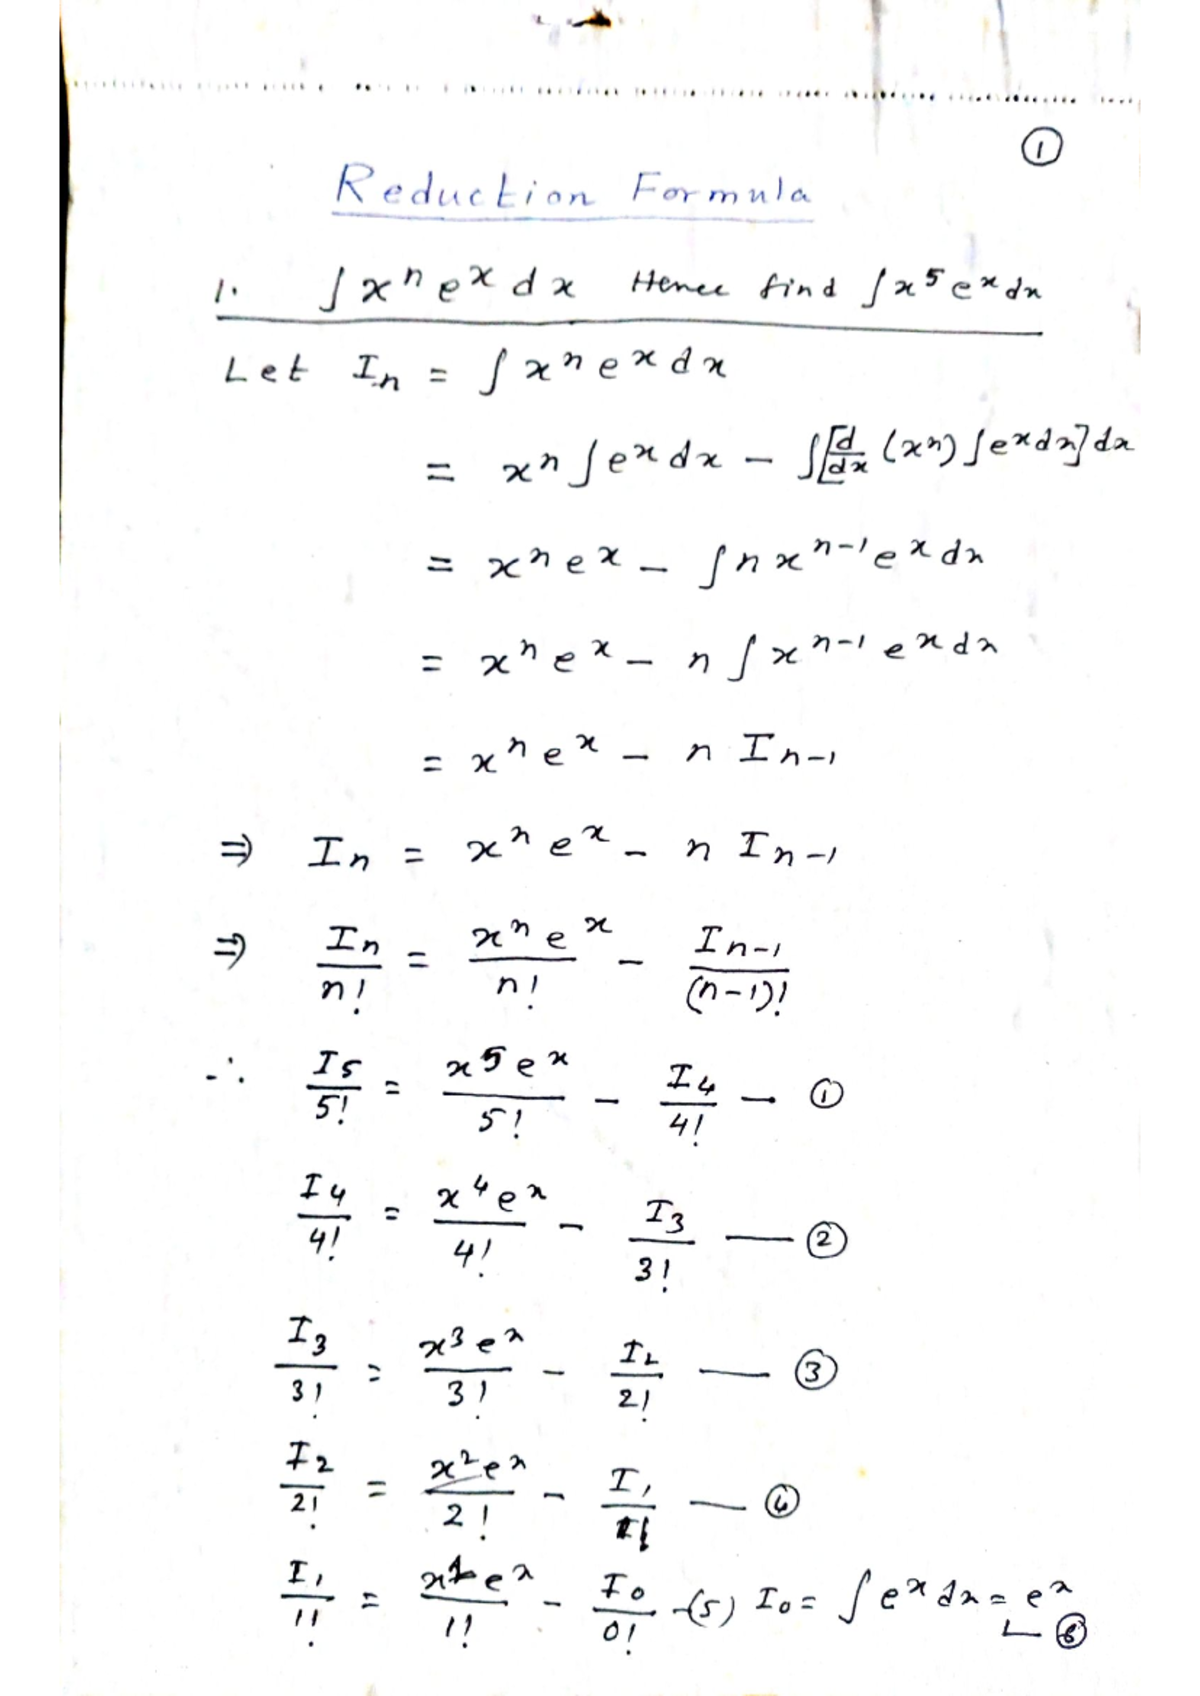 ①
Reduction Formula
1. ∫ xⁿ eˣ dx Hence find ∫ x⁵ eˣ dx
Let Iₙ = ∫ xⁿ eˣ dx
= xⁿ ∫ eˣ dx − ∫ [d/dx (xⁿ) ∫ eˣ dx] dx
= xⁿ eˣ − ∫ n xⁿ⁻¹ eˣ dx
= xⁿ eˣ − n ∫ xⁿ⁻¹ eˣ dx
= xⁿ eˣ − n Iₙ₋₁
⇒ Iₙ = xⁿ eˣ − n Iₙ₋₁
⇒ Iₙ/n! = xⁿ eˣ/n! − Iₙ₋₁/(n−1)!
∴ I₅/5! = x⁵ eˣ/5! − I₄/4! — ①
I₄/4! = x⁴ eˣ/4! − I₃/3! — ②
I₃/3! = x³ eˣ/3! − I₂/2! — ③
I₂/2! = x² eˣ/2! − I₁/1! — ④
I₁/1! = x¹ eˣ/1! − I₀/0! —(5) I₀ = ∫ eˣ dx = eˣ
— ⑥